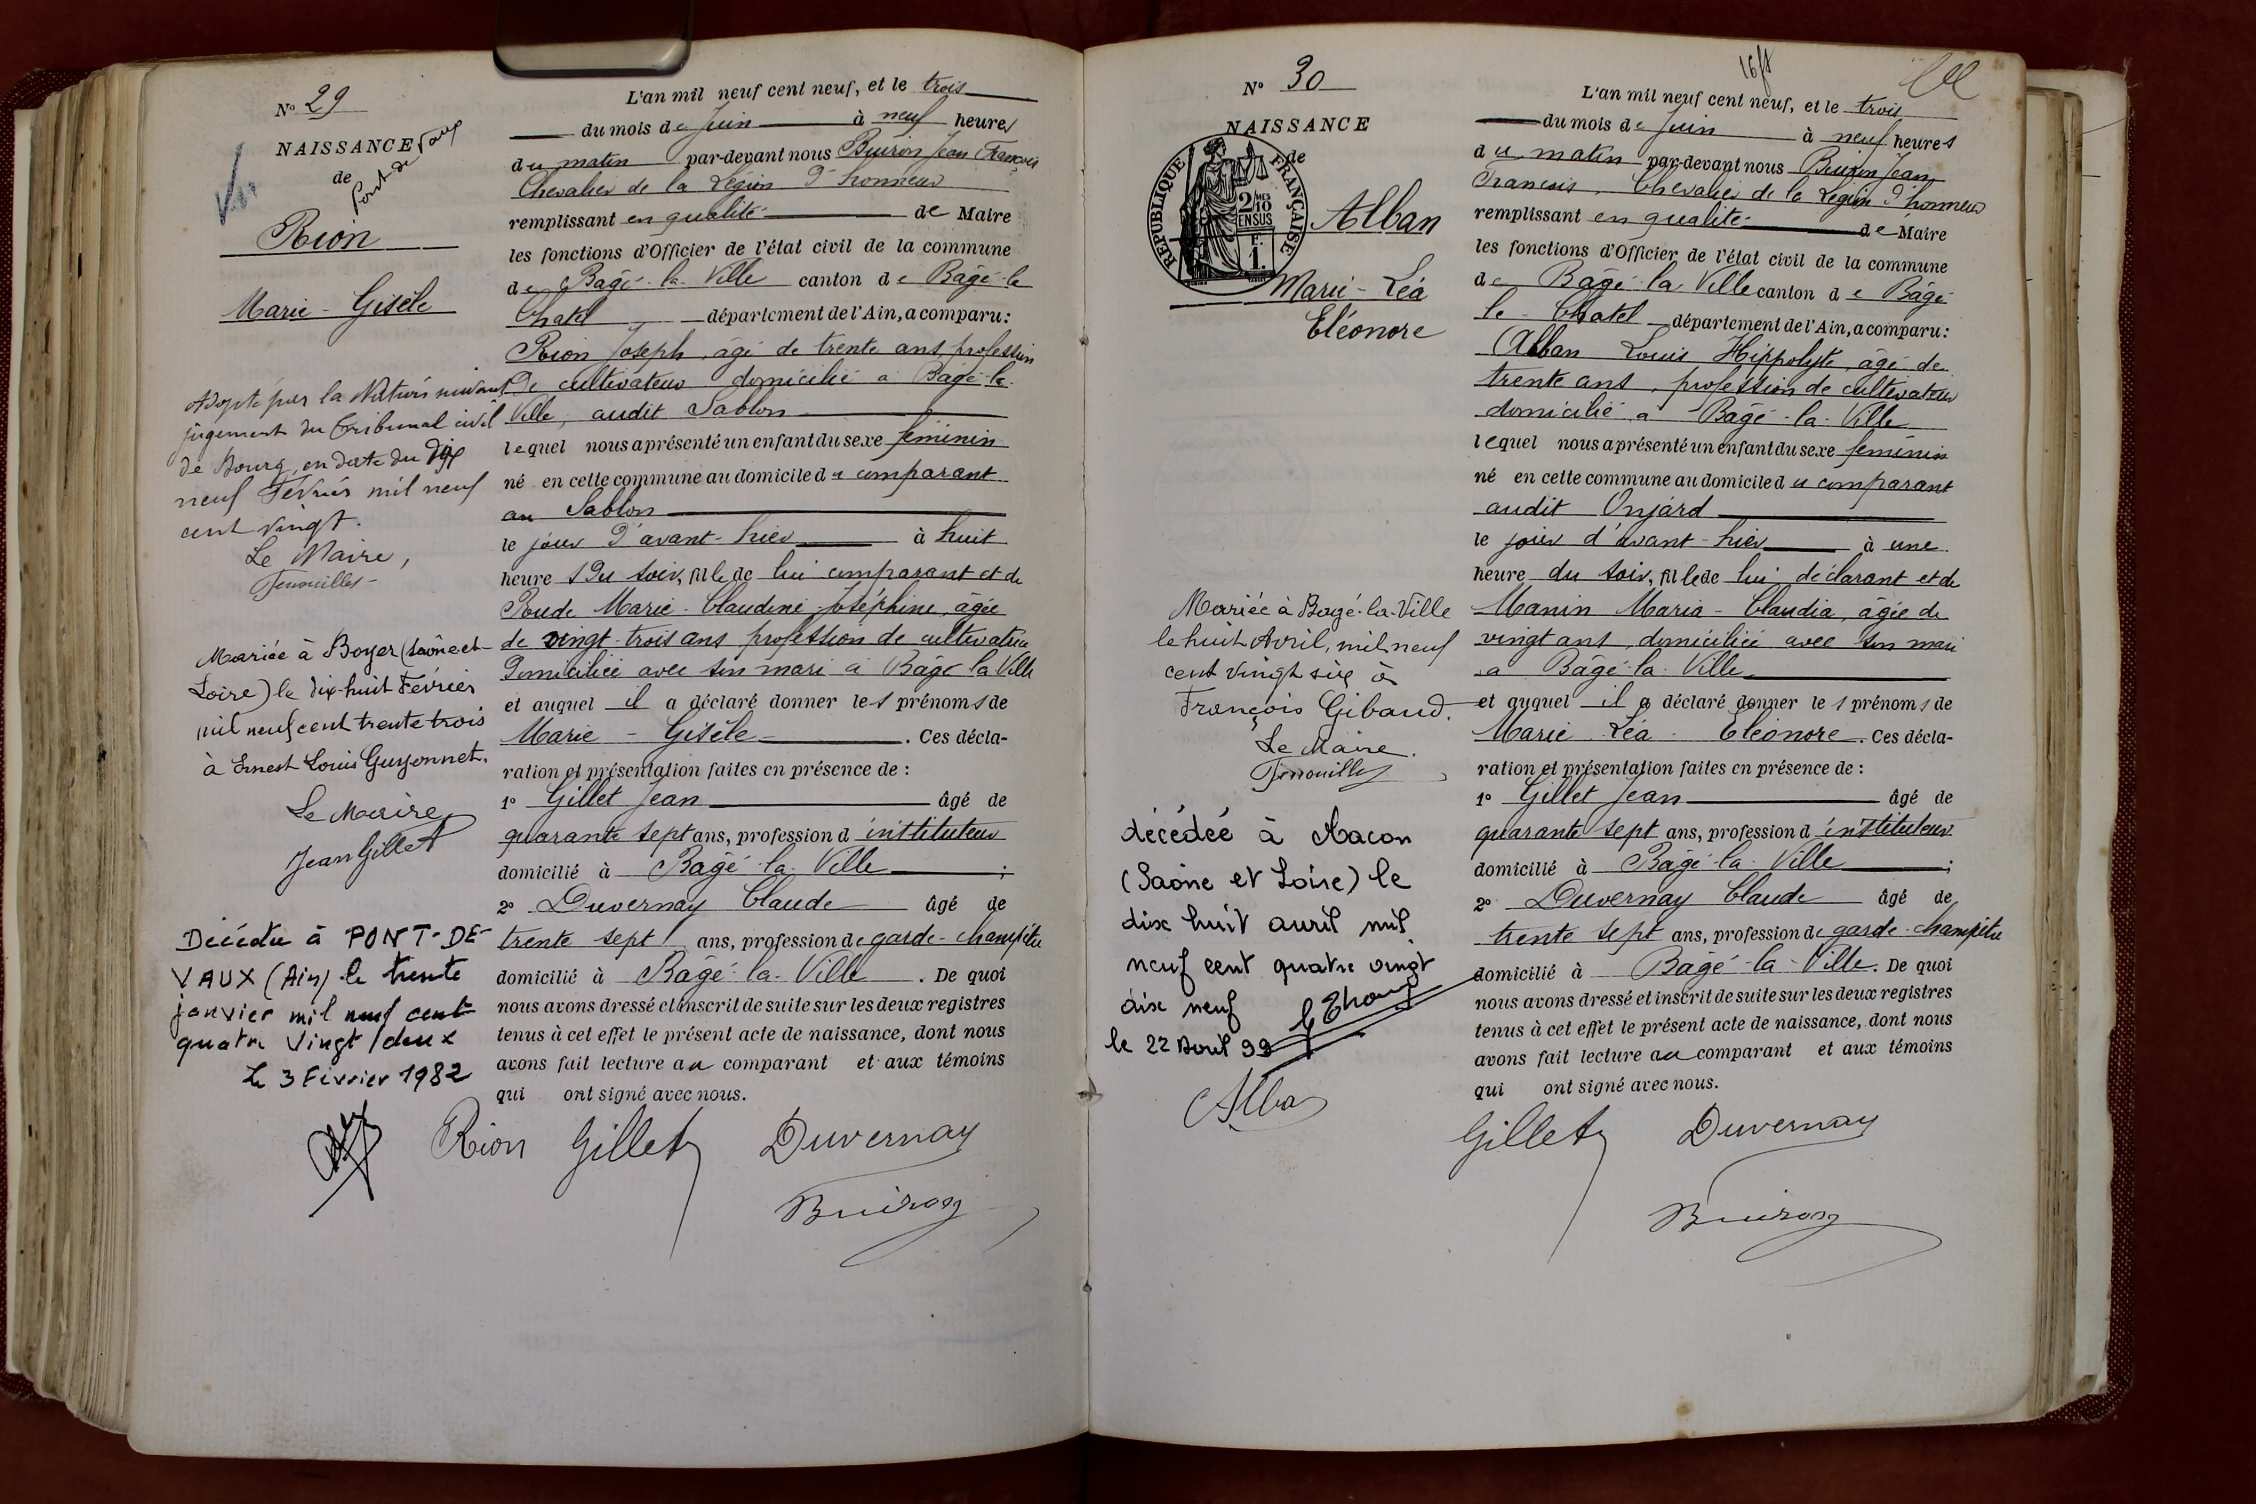 Nº 29
NAISSANCE
de
Pont de Vaux
Rion
Marie - Gisèle
Adopté par la Nation suivant
jugement du Tribunal civil
de Bourg, en date du dix
neuf Février mil neuf
cent vingt.
Le Maire,
Mariée à Boyer (Saône et-
Loire) le dix-huit Février
mil neuf cent trente trois
à Ernest Louis Guyonnet.
Le Maire
Jean Gillet
Décédée à PONT-DE-
VAUX (Ain) le trente
janvier mil neuf cent
quatre vingt deux
Le 3 Février 1982
L'an mil neuf cent neuf, et le trois
du mois de Juin à neuf heures
du matin par-devant nous Buiron Jean François
Chevalier de la Légion d'honneur
remplissant en qualité de Maire
les fonctions d'Officier de l'état civil de la commune
de Bâgé-la-Ville canton de Bâgé-le
Chatel département de l'Ain, a comparu:
Rion Joseph, âgé de trente ans, profession
de cultivateur domicilié à Bâgé-la
Ville, audit Sablon
lequel nous a présenté un enfant du sexe féminin
né en cette commune au domicile du comparant
au Sablon
le jour d'avant-hier à huit
heures du soir, fille de lui comparant et de
Poude Marie-Claudine-Joséphine, âgée
de vingt-trois ans profession de cultivatrice
domiciliée avec son mari à Bâgé la Ville
et auquel il a déclaré donner les prénoms de
Marie - Gisèle . Ces décla-
ration et présentation faites en présence de :
1º Gillet Jean âgé de
quarante sept ans, profession d'instituteur
domicilié à Bâgé-la-Ville ;
2º Duvernay Claude âgé de
trente sept ans, profession de garde-champêtre
domicilié à Bâgé-la-Ville . De quoi
nous avons dressé et inscrit de suite sur les deux registres
tenus à cet effet le présent acte de naissance, dont nous
avons fait lecture au comparant et aux témoins
qui ont signé avec nous.
Rion Gillet Duvernay
Buiron
Nº 30
NAISSANCE
de
RÉPUBLIQUE FRANÇAISE
2 MES
10
EN SUS
F.
1.
Alban
Marie-Léa
Eléonore
Mariée à Bagé-la-Ville
le huit Avril, mil neuf
cent vingt six à
François Gibaud.
Le Maire.
décédée à Macon
(Saône et Loire) le
dix huit avril mil
neuf cent quatre vingt
dix neuf
le 22 Avril 99
L'an mil neuf cent neuf, et le trois
du mois de Juin à neuf heures
du matin par-devant nous Buiron Jean
François, Chevalier de la Légion d'honneur
remplissant en qualité de Maire
les fonctions d'Officier de l'état civil de la commune
de Bâgé-la Ville canton de Bâgé
le Chatel département de l'Ain, a comparu:
Alban Louis Hippolyte, âgé de
trente ans, profession de cultivateur
domicilié à Bâgé-la-Ville
lequel nous a présenté un enfant du sexe féminin
né en cette commune au domicile du comparant
audit Onjard
le jour d'avant-hier à une
heure du soir, fille de lui déclarant et de
Manin Maria-Claudia, âgée de
vingt ans, domiciliée avec son mari
à Bâgé-la-Ville
et auquel il a déclaré donner les prénoms de
Marie Léa Eléonore . Ces décla-
ration et présentation faites en présence de :
1º Gillet Jean âgé de
quarante sept ans, profession d'instituteur
domicilié à Bâgé-la-Ville ;
2º Duvernay Claude âgé de
trente sept ans, profession de garde-champêtre
domicilié à Bâgé-la-Ville. De quoi
nous avons dressé et inscrit de suite sur les deux registres
tenus à cet effet le présent acte de naissance, dont nous
avons fait lecture au comparant et aux témoins
qui ont signé avec nous.
Alban Gillet Duvernay
Buiron